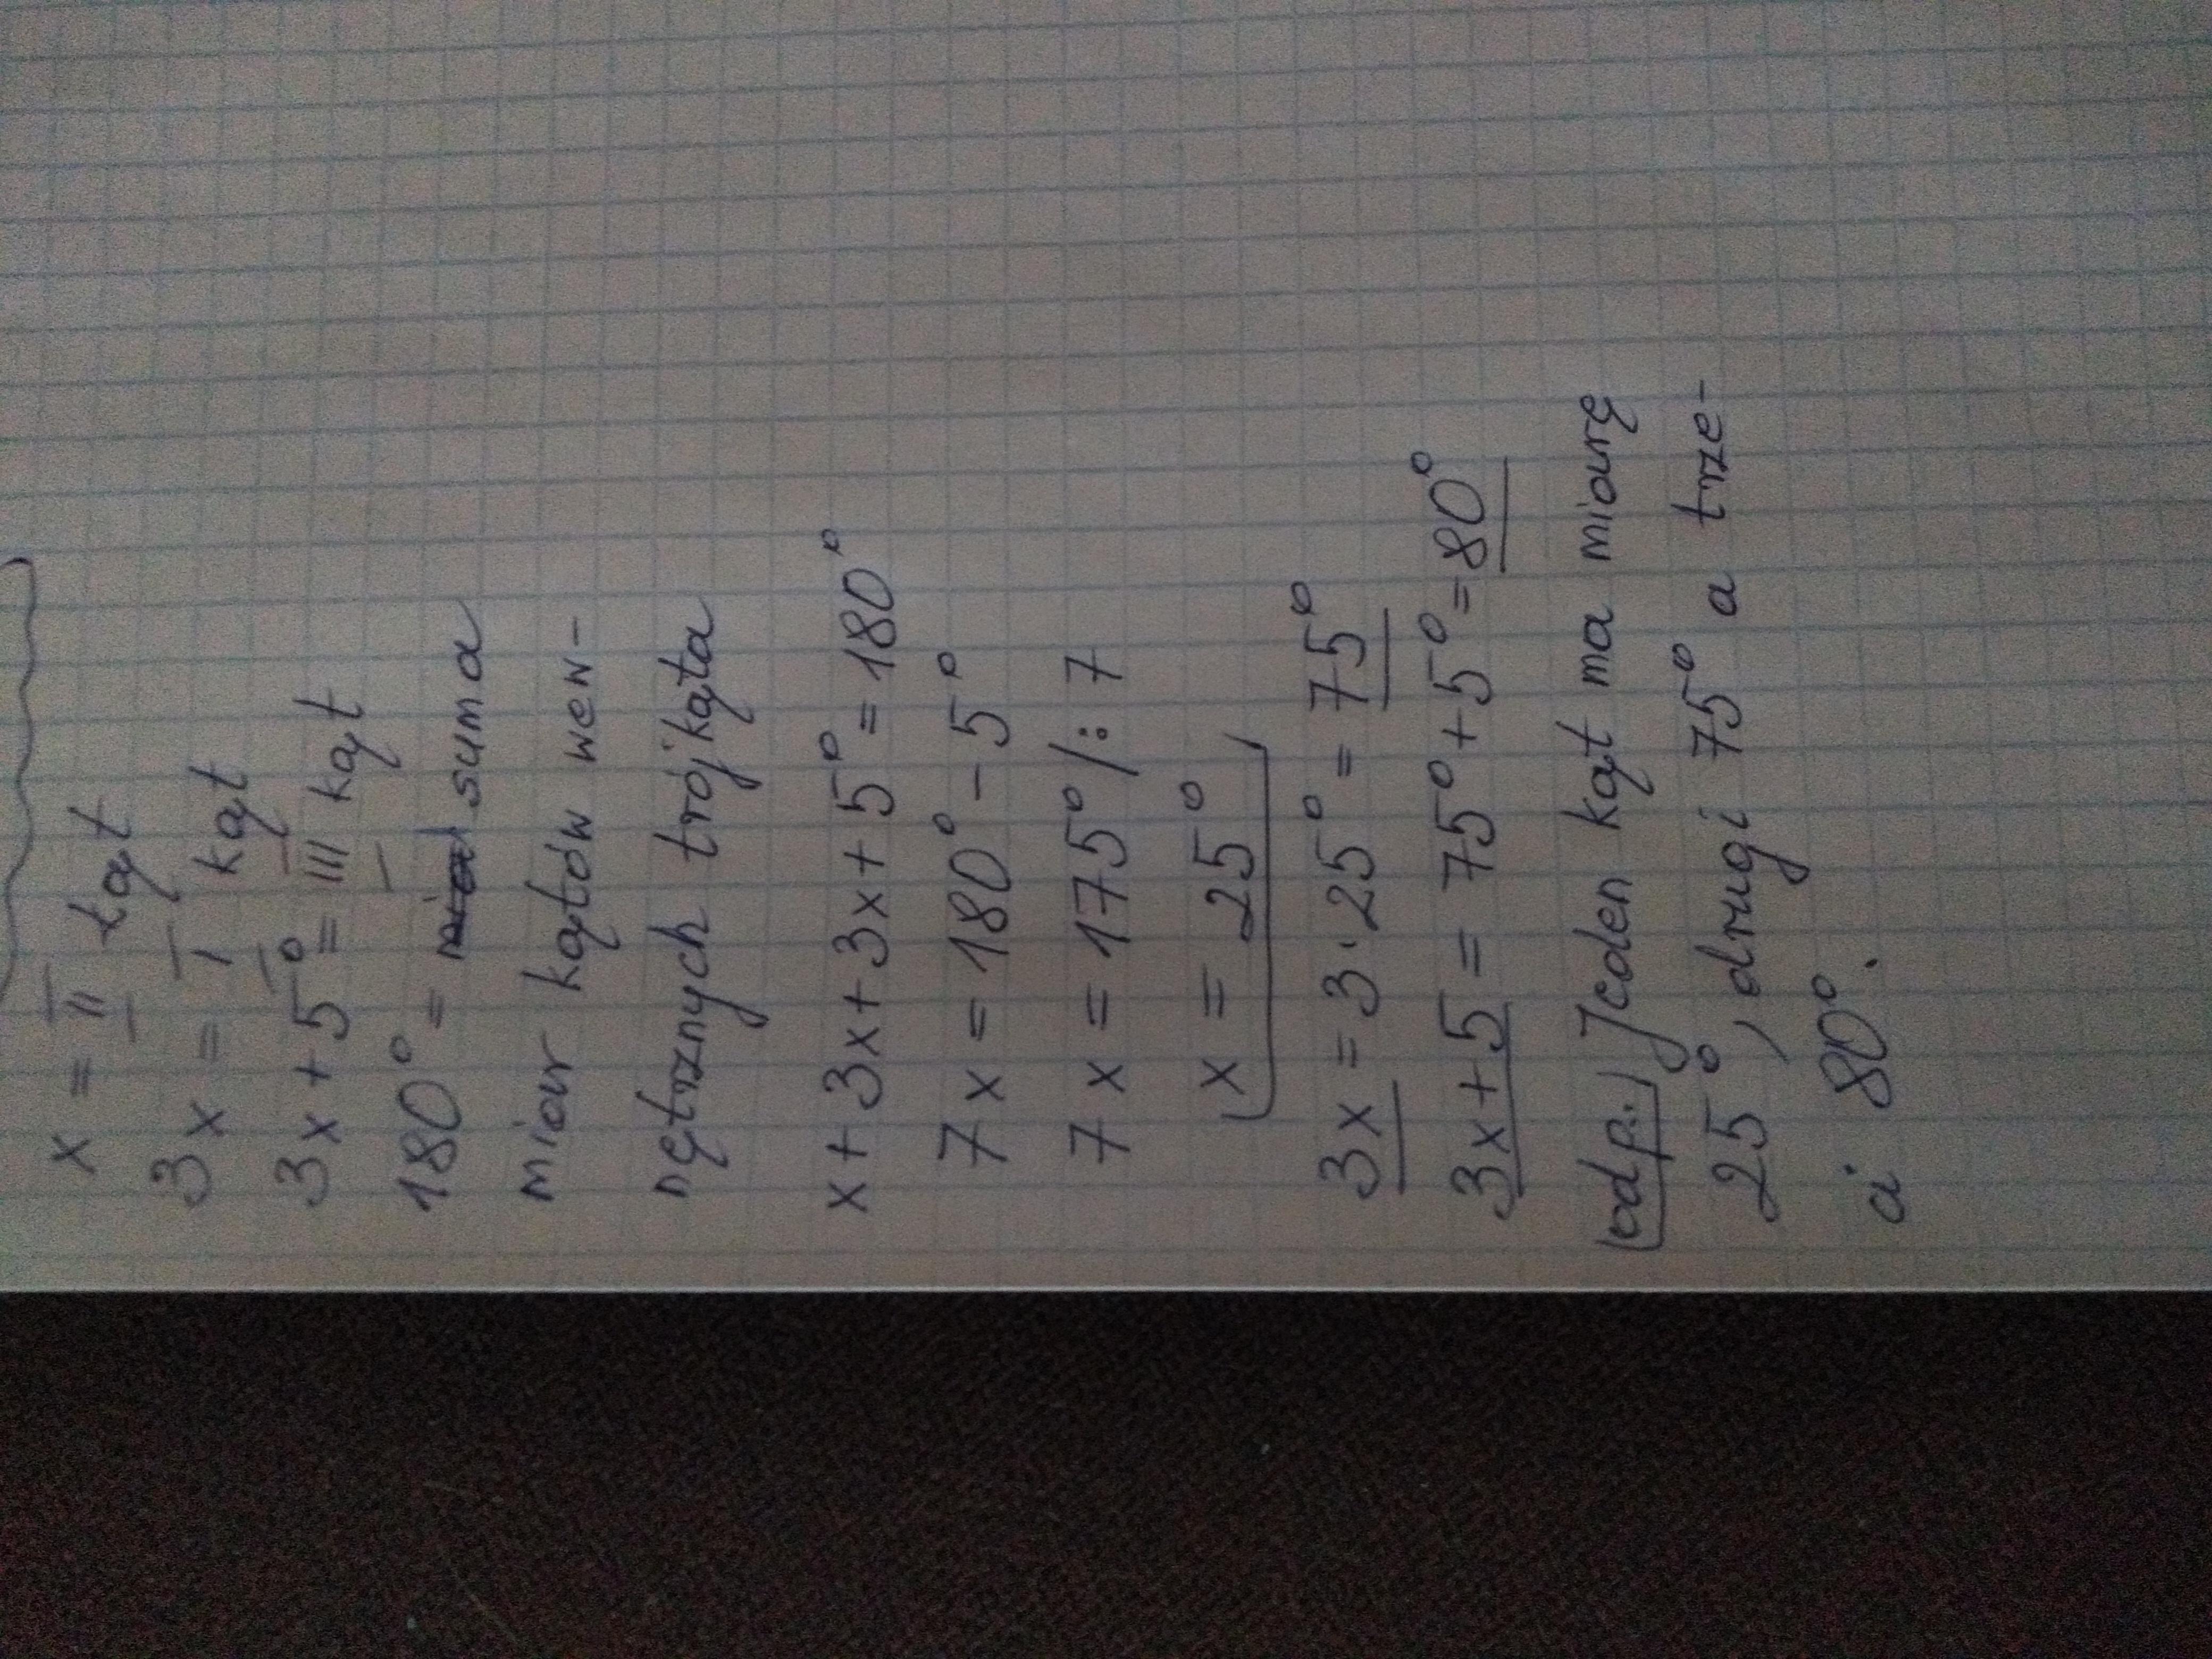 x = II kąt
3x = I kąt
3x + 5° = III kąt
180° = suma
miar kątów wew-
nętrznych trójkąta
x + 3x + 3x + 5° = 180°
7x = 180° - 5°
7x = 175° /: 7
x = 25°
3x = 3 · 25° = 75°
3x + 5 = 75° + 5° = 80°
odp. Jeden kąt ma miarę
25°, drugi 75° a trze-
ci 80°.